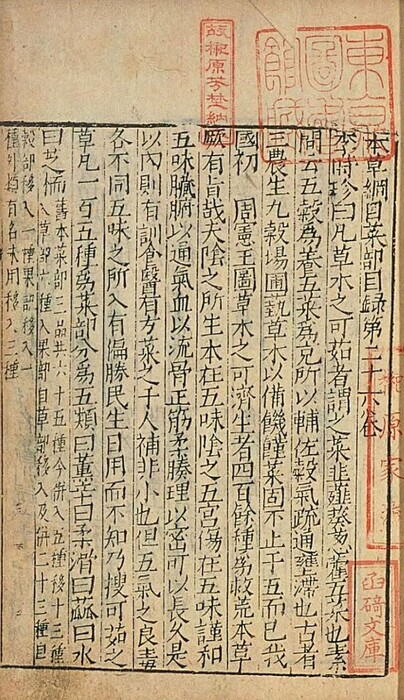 本草綱目菜部目録第二十六卷
李時珍曰凡草木之可茹者謂之菜韭薤葵葱藿五菜也素
問云五穀爲養五菜爲充所以輔佐穀氣疏通壅滯也古者
三農生九穀場圃蓺草木以備饑饉菜固不止于五而已我
國初 周憲王圖草木之可濟生者四百餘種爲救荒本草
厥有旨哉夫陰之所生本在五味陰之五宮傷在五味謹和
五味臟腑以通氣血以流骨正筋柔腠理以密可以長久是
以內則有訓食醫有方菜之于人補非小也但五氣之良毒
各不同五味之所入有偏勝民生日用而不知乃搜可茹之
草凡一百五種爲菜部分爲五類曰薰辛曰柔滑曰蓏曰水
曰芝栭
舊本菜部三品共六十五種今併入五種移十三種
入草部六種入果部自草部移入及併二十三種自
穀部移入一種果部移入一
種外類有名未用移入三種
東京
圖書
館藏
故榊原芳埜納本
榊原家藏
文庫